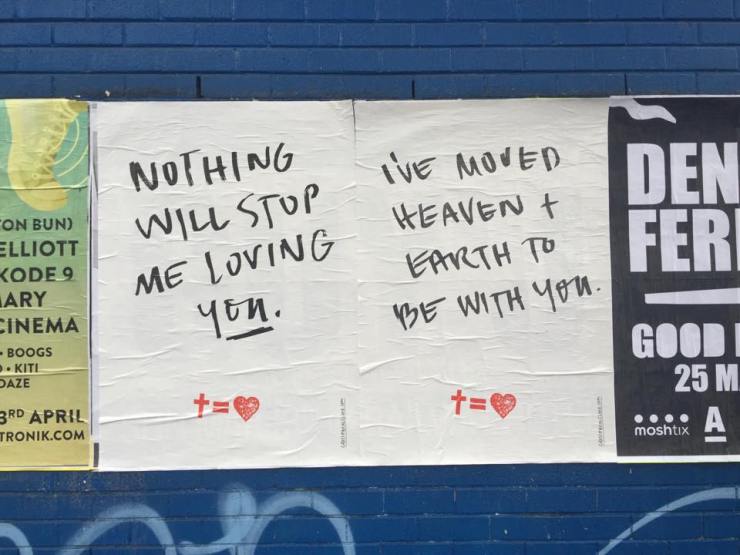 ON BUN)
ELLIOTT
KODE 9
ARY
CINEMA
• BOOGS
• KITI
DAZE
3RD APRIL
TRONIK.COM
NOTHING
WILL STOP
ME LOVING
YOU.
†=♥
I'VE MOVED
HEAVEN +
EARTH TO
BE WITH YOU.
†=♥
DEN
FER
GOOD
25 M
moshtix
A